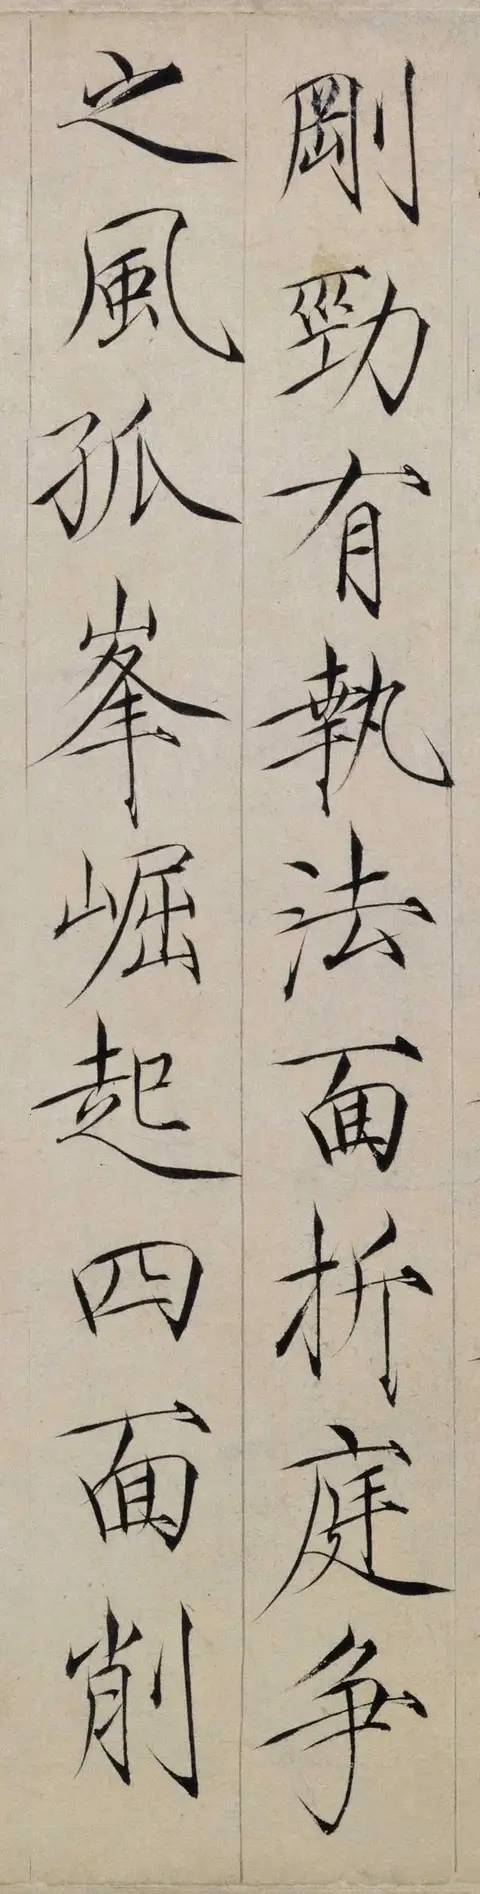 剛勁有執法面折庭爭
之風孤峯崛起四面削